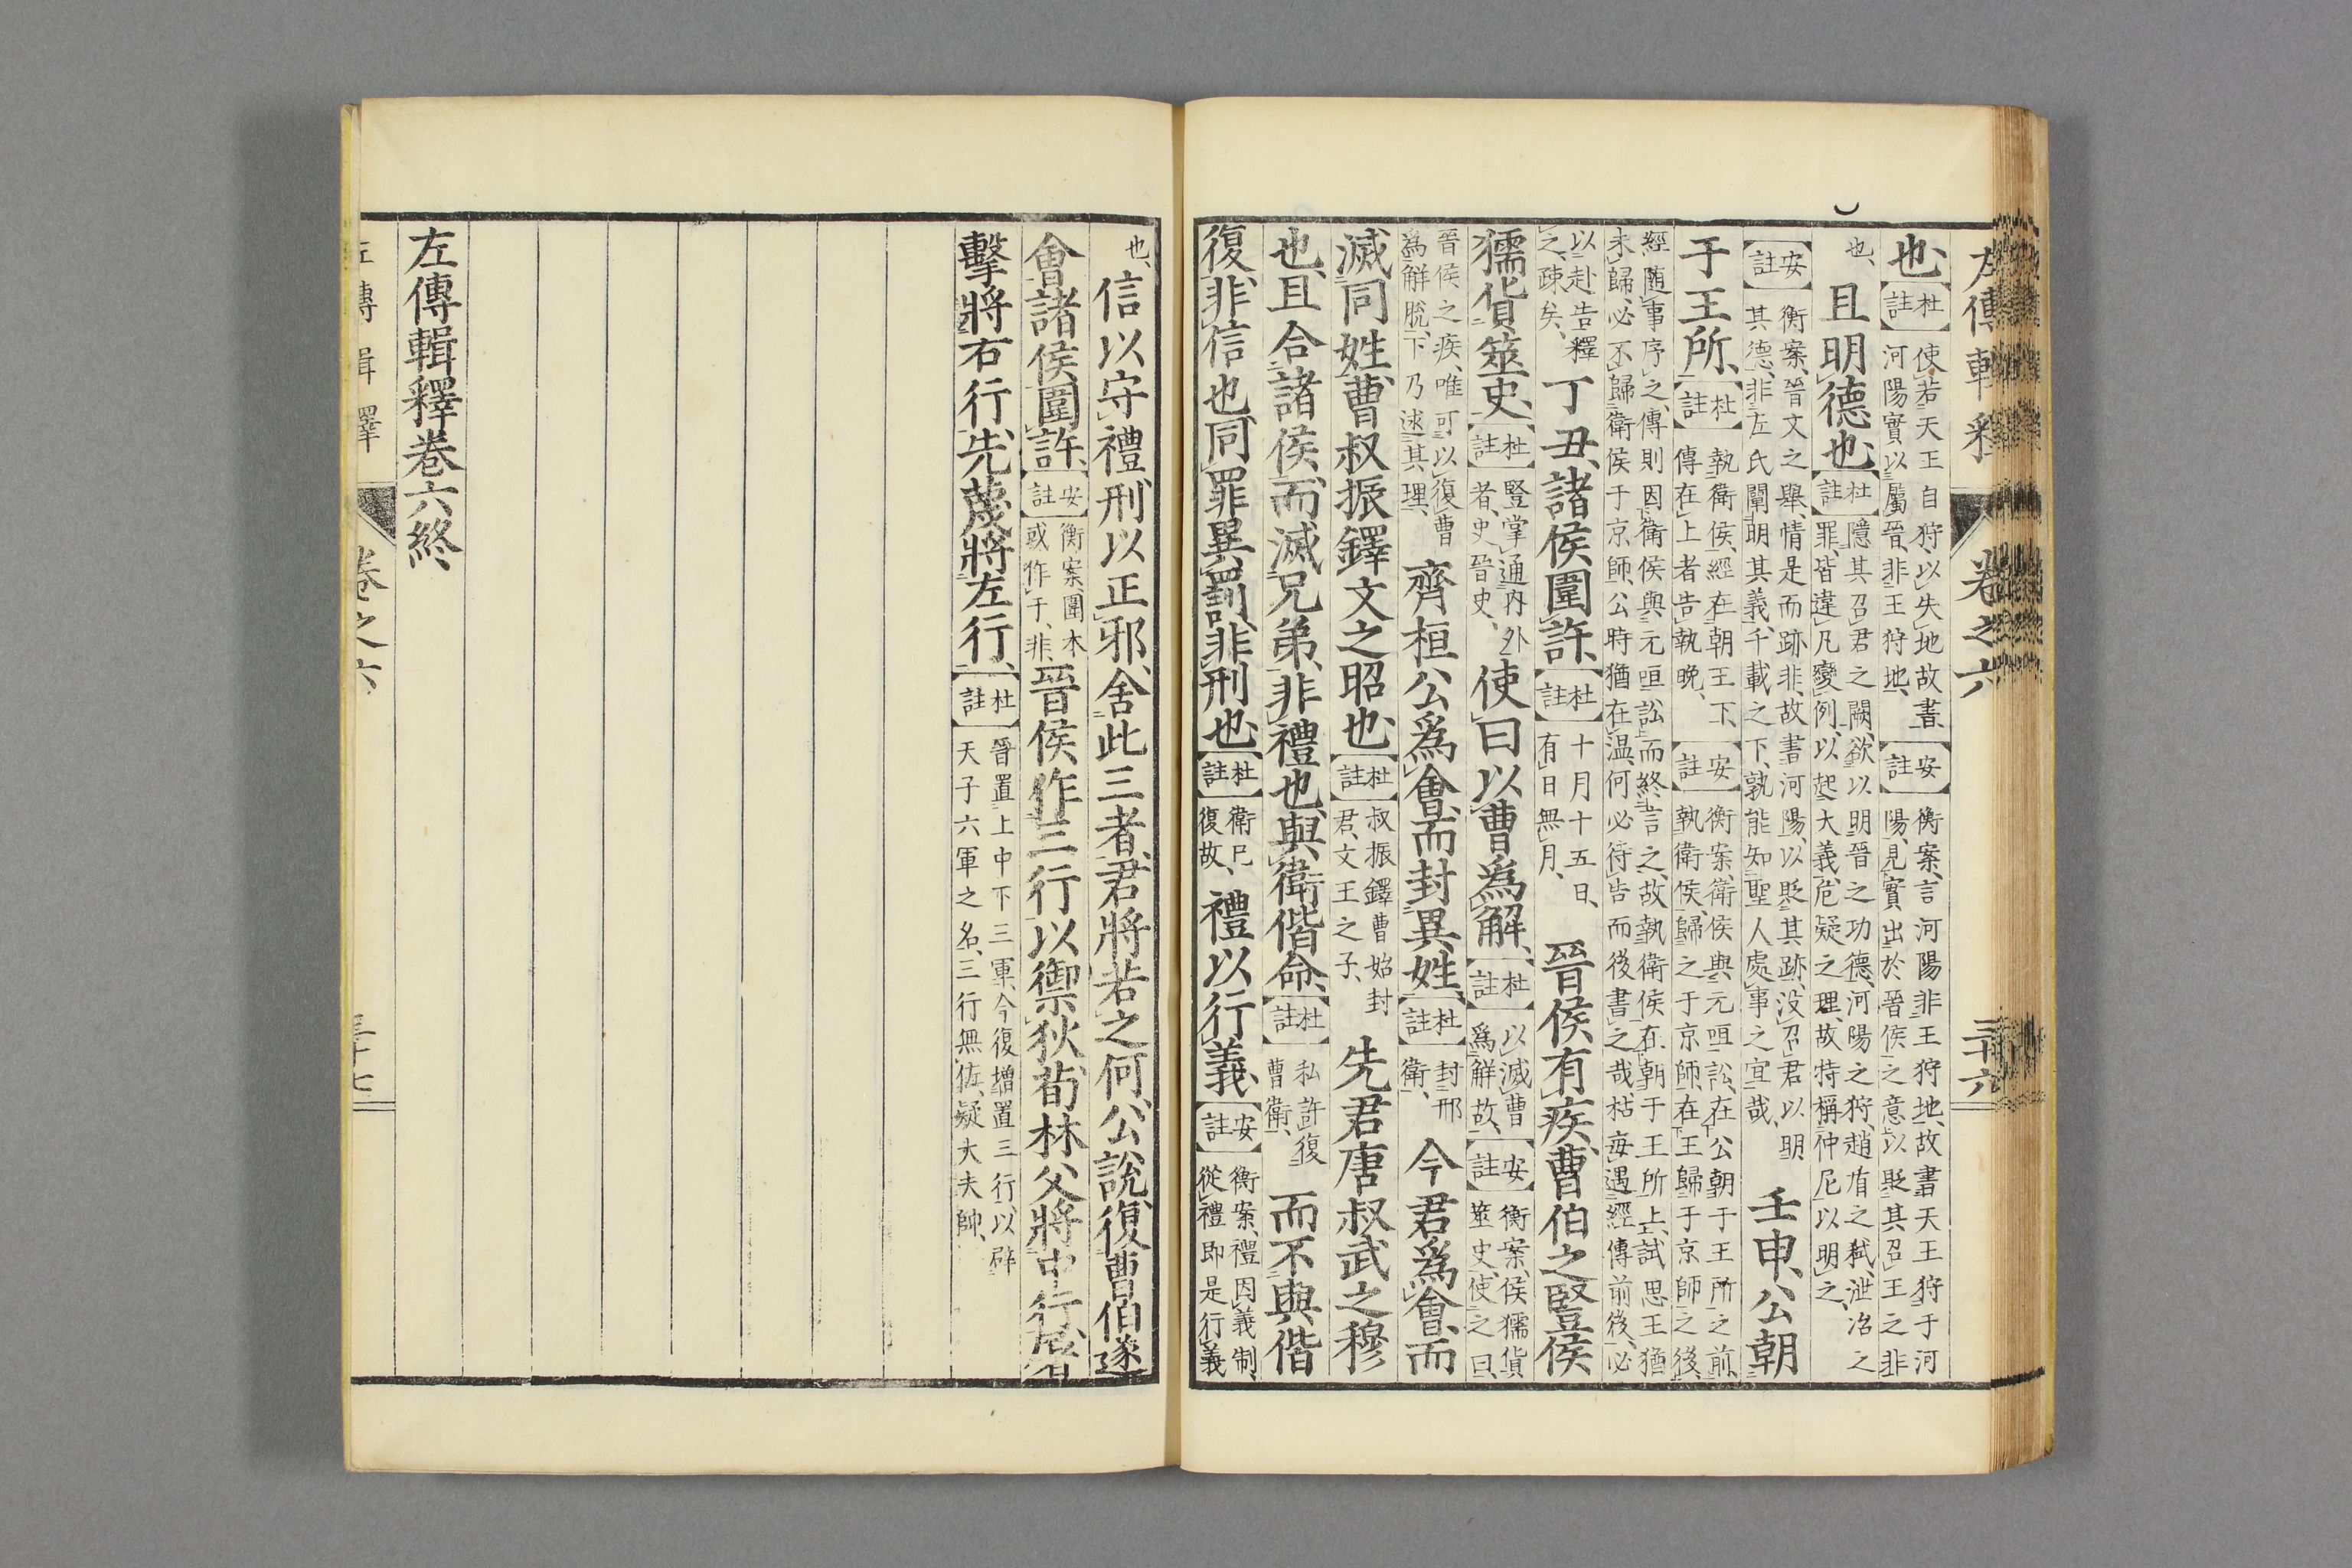 左傳輯釋 卷之六 三十六
也、【杜註】使若天王自狩、以失地故書、河陽實以屬晉、非王狩地、【安註】衡案、言河陽非王狩地、故書天王狩于河陽、見實出於晉侯之意、以貶其召王之非
也、且明德也、【杜註】隱其召君之闕、欲以明晉之功德、河陽之狩、趙盾之弒、泄冶之罪、皆違凡變例、以起大義、危疑之理、故特稱仲尼以明之、
【安註】衡案、晉文之舉、情是而跡非、故書河陽、以貶其跡、没召君以明其德、非左氏闡明其義、千載之下、孰能知聖人處事之宜哉、壬申、公朝
于王所、【杜註】執衛侯、經在朝王下、傳在上者、告執晚、【安註】衡案、衛侯與元咺訟、在公朝于王所之前、執衛侯、歸之于京師、在王歸于京師之後、
經隨事序之、傳則因衛侯與元咺訟、而終言之、故執衛侯在朝于王所上、試思王猶未歸、必不歸衛侯于京師、公時猶在溫、何必待告而後書之哉、枯毎遇經傳前後、必
以赴告釋之、疎矣、丁丑、諸侯圍許、【杜註】十月十五日、有日無月、晉侯有疾、曹伯之豎侯
獳貨筮史、【杜註】豎掌通內外者、史、晉史、使曰以曹爲解、【杜註】以滅曹爲解故、【安註】衡案、侯獳貨筮史、使之曰、
晉侯之疾、唯可以復曹爲解脫、下乃逑其理、齊桓公爲會、而封異姓、【杜註】封邢衛、今君爲會、而
滅同姓、曹叔振鐸、文之昭也、【杜註】叔振鐸、曹始封君、文王之子、先君唐叔、武之穆
也、且合諸侯、而滅兄弟、非禮也、與衛偕命、【杜註】私許復曹衛、而不與偕
復、非信也、同罪異罰、非刑也、【杜註】衛已復故、禮以行義、【安註】衡案、禮因義制、從禮即是行義
也、信以守禮、刑以正邪、舍此三者、君將若之何、公說、復曹伯、遂
會諸侯圍許、【安註】衡案、圍本或作于、非、晉侯作三行以禦狄、荀林父將中行、屠
擊將右行、先蔑將左行、【杜註】晉置上中下三軍、今復增置三行、以辟天子六軍之名、三行無佐、疑大夫帥、
左傳輯釋卷六終
左傳輯釋 卷之六 三十七